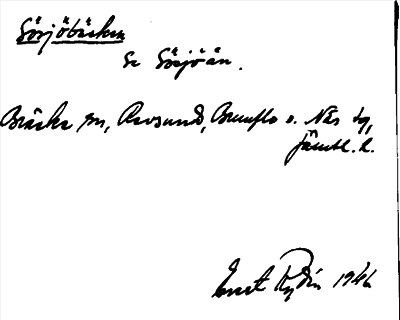 Görjöbäcken
Se Görjöån.
Bräcke sn, Revsund, Brunflo o. Näs tg,
Jämtl. l.
Ernst Rydin 1946